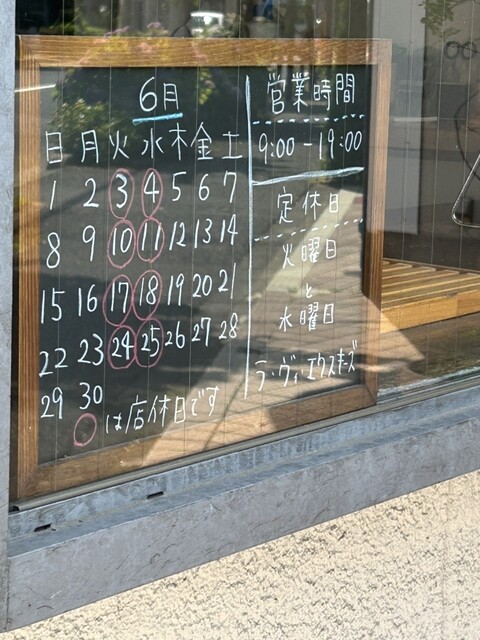 6月
日 月 火 水 木 金 土
1 2 3 4 5 6 7
8 9 10 11 12 13 14
15 16 17 18 19 20 21
22 23 24 25 26 27 28
29 30
○は店休日です
営業時間
9:00-19:00
定休日
火曜日
と
水曜日
ラ・ヴィ・エクスキズ